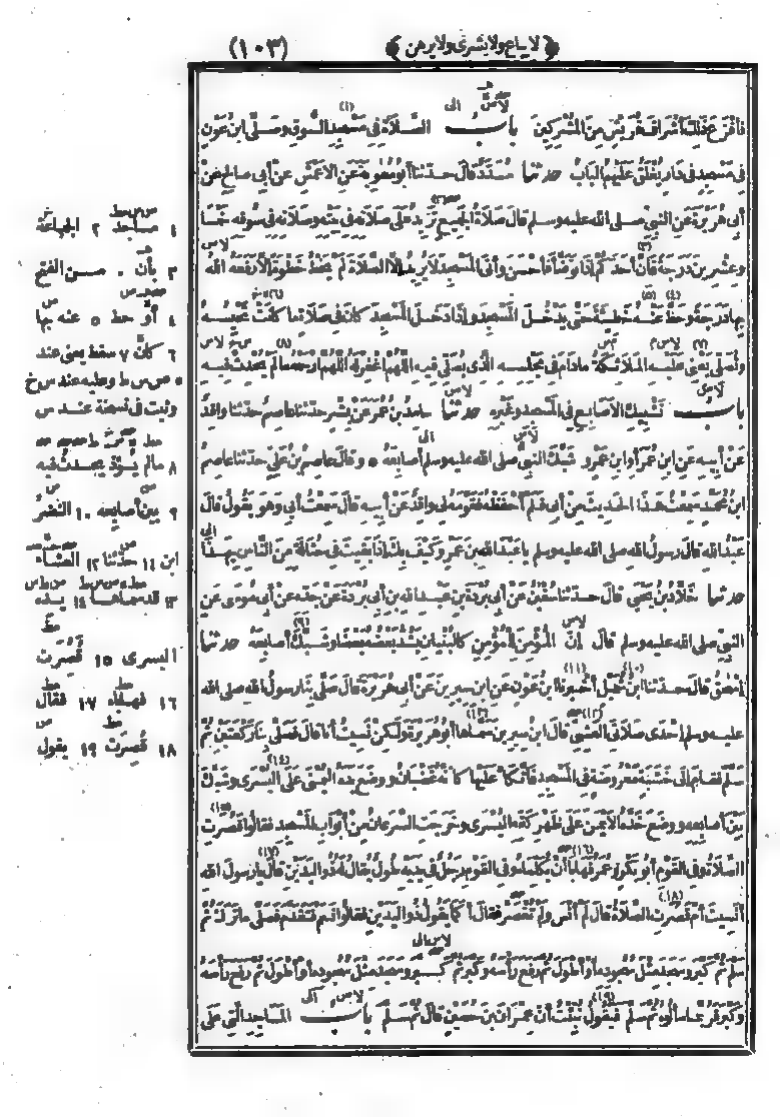 ﴿لا يباع ولا يشرى ولا يرهن﴾ (١٠٣)
فأفزع ذلك أشراف قريش من المشركين باب الصلاة في مسجد السوق وصلى ابن عون
في مسجد في دار يغلق عليهم الباب حدثنا مسدد قال حدثنا أبو معوية عن الاعمش عن أبي صالح عن
أبي هريرة عن النبي صلى الله عليه وسلم قال صلاة الجميع تزيد على صلاته في بيته وصلاته في سوقه خمسا
وعشرين درجة فان أحدكم إذا توضأ فأحسن وأتى المسجد لا يريد إلا الصلاة لم يخط خطوة إلا رفعه الله
بها درجة وحط عنه خطيئة حتى يدخل المسجد وإذا دخل المسجد كان في صلاة ما كانت تحبسه
وتصلي يعني عليه الملائكة مادام في مجلسه الذي يصلي فيه اللهم اغفر له اللهم ارحمه ما لم يحدث فيه
باب تشبيك الأصابع في المسجد وغيره حدثنا حامد بن عمر عن بشر حدثنا عاصم حدثنا واقد
عن أبيه عن ابن عمر أو ابن عمرو شبك النبي صلى الله عليه وسلم أصابعه * وقال عاصم بن علي حدثنا عاصم
ابن محمد سمعت هذا الحديث من أبي فلم أحفظه فقومه لي واقد عن أبيه قال سمعت أبي وهو يقول قال
عبد الله قال رسول الله صلى الله عليه وسلم يا عبد الله بن عمرو كيف بك إذا بقيت في حثالة من الناس بهذا
حدثنا خلاد بن يحيى قال حدثنا سفين عن أبي بردة بن عبد الله بن أبي بردة عن جده عن أبي موسى عن
النبي صلى الله عليه وسلم قال إن المؤمن للمؤمن كالبنيان يشد بعضه بعضا وشبك أصابعه حدثنا
إسحق قال حدثنا ابن شميل أخبرنا ابن عون عن ابن سيرين عن أبي هريرة قال صلى بنا رسول الله صلى الله
عليه وسلم إحدى صلاتي العشي قال ابن سيرين سماها أبو هريرة ولكن نسيت أنا قال فصلى بنا ركعتين ثم
سلم فقام إلى خشبة معروضة في المسجد فاتكأ عليها كأنه غضبان ووضع يده اليمنى على اليسرى وشبك
بين أصابعه ووضع خده الأيمن على ظهر كفه اليسرى وخرجت السرعان من أبواب المسجد فقالوا قصرت
الصلاة وفي القوم أبو بكر وعمر فهابا أن يكلماه وفي القوم رجل في يديه طول يقال له ذو اليدين قال يا رسول الله
أنسيت أم قصرت الصلاة قال لم أنس ولم تقصر فقال أكما يقول ذو اليدين فقالوا نعم فتقدم فصلى ما ترك ثم
سلم ثم كبر وسجد مثل سجوده أو أطول ثم رفع رأسه وكبر ثم كبر وسجد مثل سجوده أو أطول ثم رفع رأسه
وكبر فربما سألوه ثم سلم فيقول نبئت أن عمران بن حصين قال ثم سلم باب المساجد التي على
١ مساجد ٢ الجماعة
٣ بأن . من الفتح
٤ أو حط ٥ عنه بها
٦ كان ٧ سقط يعني عند
ص س ط وعليه عند س خ
وثبت في نسخة عند س
٨ ما لم يؤذ يحدث فيه
٩ بين أصابعه ١٠ النضر
ابن ١١ حدثنا ١٢ العشاء
١٣ قد سماها ١٤ يده
اليسرى ١٥ قصرت
١٦ فهاباه ١٧ فقال
١٨ قصرت ١٩ يقول